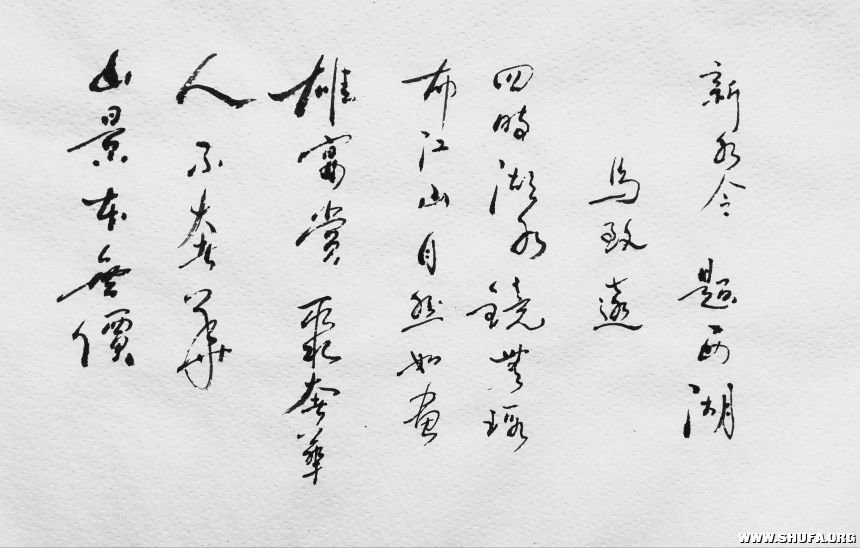 新水令 題西湖
馬致遠
四時湖水鏡無瑕
布江山自然如畫
雄宴賞 聚奢華
人不奢華
山景本無價
WWW.SHUFA.ORG